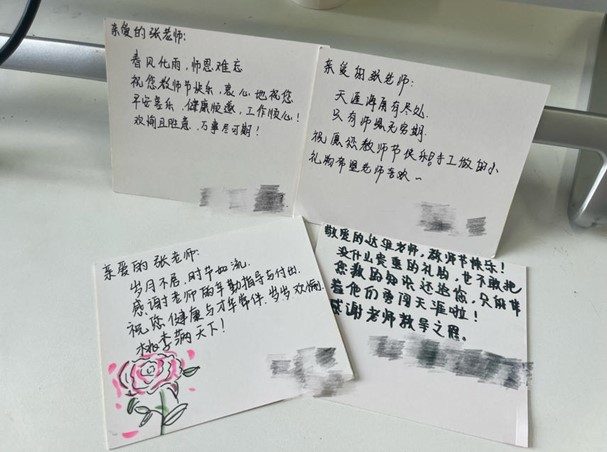 亲爱的张老师:
春风化雨,师恩难忘
祝您教师节快乐,衷心地祝您
平安喜乐,健康顺遂,工作顺心!
欢愉且胜意,万事尽可期!
亲爱的张老师:
天涯海角有尽处
只有师恩无穷期.
祝愿您教师节快乐!手工做的小
礼物希望老师喜欢~
亲爱的张老师:
岁月不居,时节如流.
感谢老师的辛勤指导与付出
祝您健康与才华常伴.岁岁欢愉
桃李满天下!
敬爱的达华老师,教师节快乐!
没什么贵重的礼物,也不敢把
您教的知识还给您,只能带
着他们勇闯天涯啦!
感谢老师教导之恩。